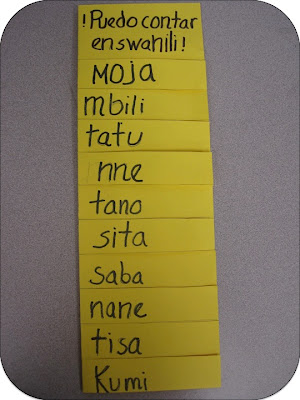 !Puedo contar
en swahili!
MOJA
mbili
tatu
nne
tano
sita
saba
nane
tisa
Kumi